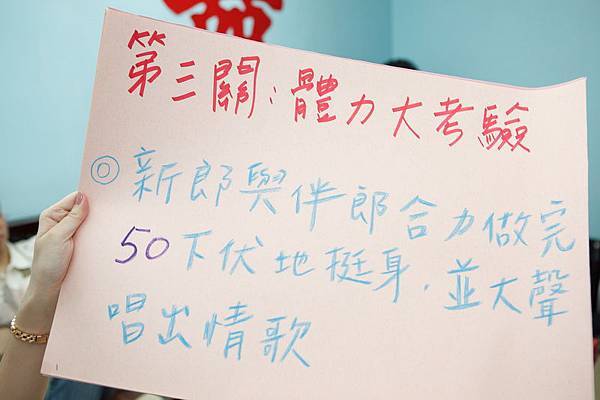 第三關：體力大考驗
◎新郎與伴郎合力做完
50下伏地挺身，並大聲
唱出情歌